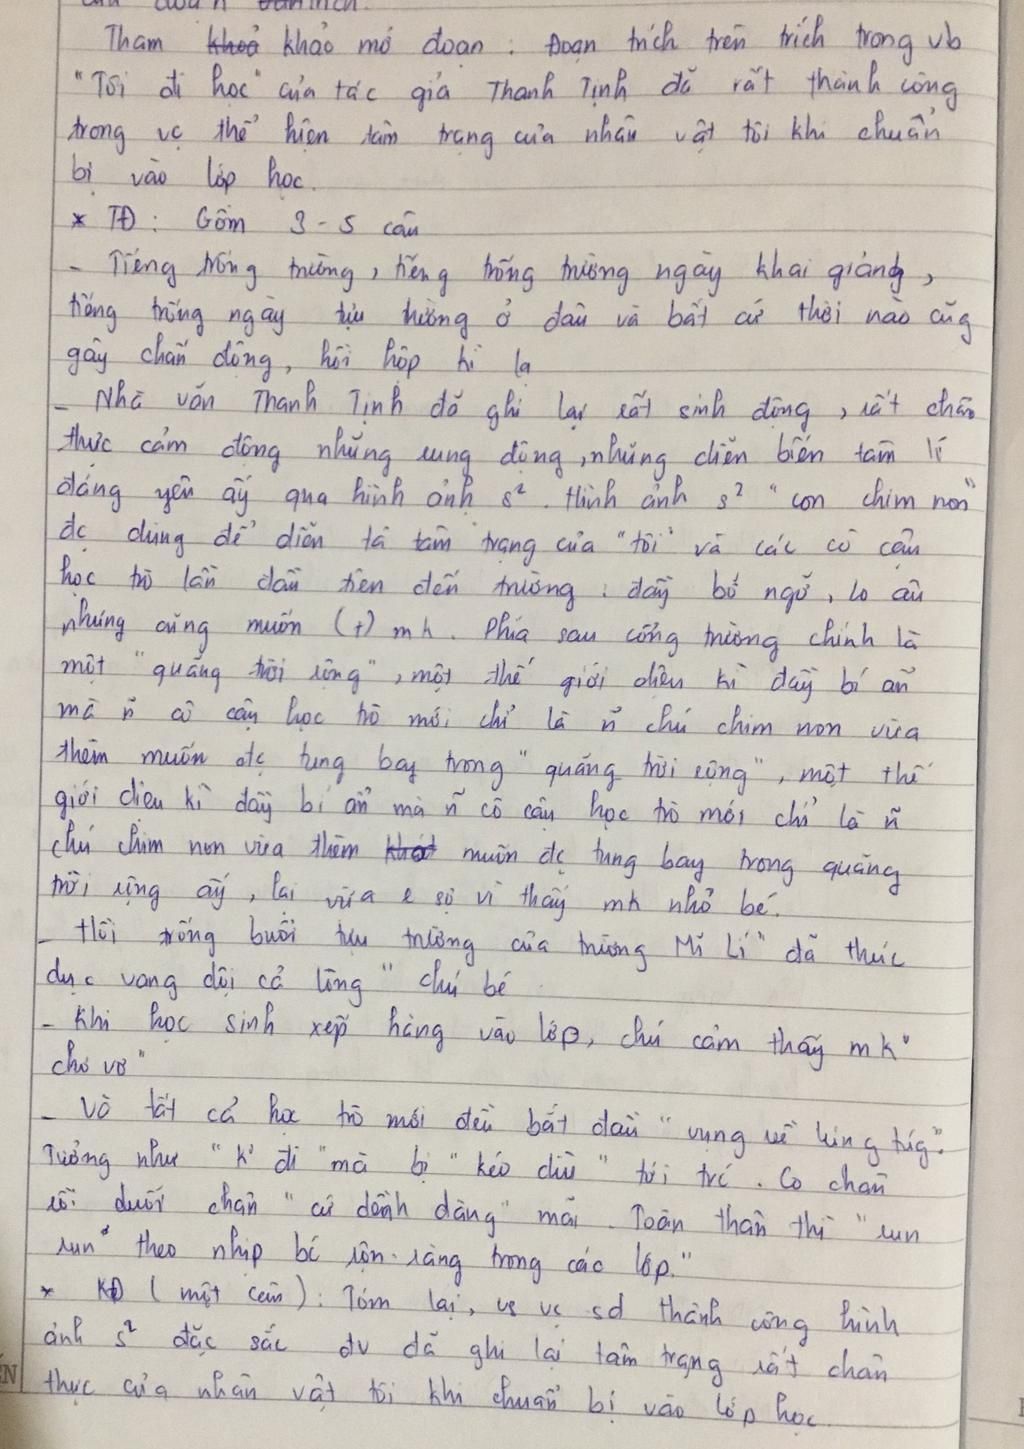 câu đoạn
Tham khảo mở đoạn : Đoạn trích trên trích trong vb
"Tôi đi học" của tác giả Thanh Tịnh đã rất thành công
trong vc thể hiện tâm trạng của nhân vật tôi khi chuẩn
bị vào lớp học.
* TĐ : Gồm 3 - 5 câu
- Tiếng trống trường, tiếng trống trường ngày khai giảng,
tiếng trống ngày tựu trường ở đâu và bất cứ thời nào cũg
gây chấn động, hồi hộp kì lạ
- Nhà văn Thanh Tịnh đã ghi lại rất sinh động, rất chân
thực cảm động những rung động, những diễn biến tâm lí
đáng yên ấy qua hình ảnh s². Hình ảnh s² "con chim non"
đc dùng để diễn tả tâm trạng của "tôi" và các cô cậu
học trò lần đầu tiên đến trường : đầy bỡ ngỡ, lo âu
nhưng cũng muốn (+) mh. Phía sau cổng trường chính là
một "quãng trời rộng", một thế giới diệu kì đầy bí ẩn
mà ñ cô cậu học trò mới chỉ là ñ chú chim non vừa
thèm muốn đc tung bay trong "quãng trời rộng", một thế
giới diệu kì đầy bí ẩn mà ñ cô cậu học trò mới chỉ là ñ
chú chim non vừa thèm muốn đc tung bay trong quãng
trời rộng ấy, lại vừa e sợ vì thấy mh nhỏ bé.
- Hồi trống buổi tựu trường của trường Mĩ Lí "đã thúc
dục vang dội cả lòng" chú bé
- Khi học sinh xếp hàng vào lớp, chú cảm thấy mk "
chơ vơ"
- Và tất cả học trò mới đều bắt đầu "vụng về lúng túg".
Tưởng như "k' đi" mà bị "kéo dìu" tới trc. Co chân
rồi duỗi chân "cứ dềnh dàng" mãi. Toàn thân thì "run
run" theo nhịp bc rộn ràng trong các lớp."
* KĐ (một câu) : Tóm lại, vs vc sd thành công hình
ảnh s² đặc sắc đv đã ghi lại tâm trạng rất chân
thực của nhân vật tôi khi chuẩn bị vào lớp học.